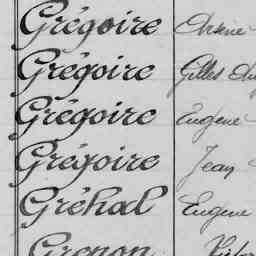 Grégoire Arsène
Grégoire Gilles
Grégoire Eugène
Grégoire Jean
Gréhal Eugene
Grenon